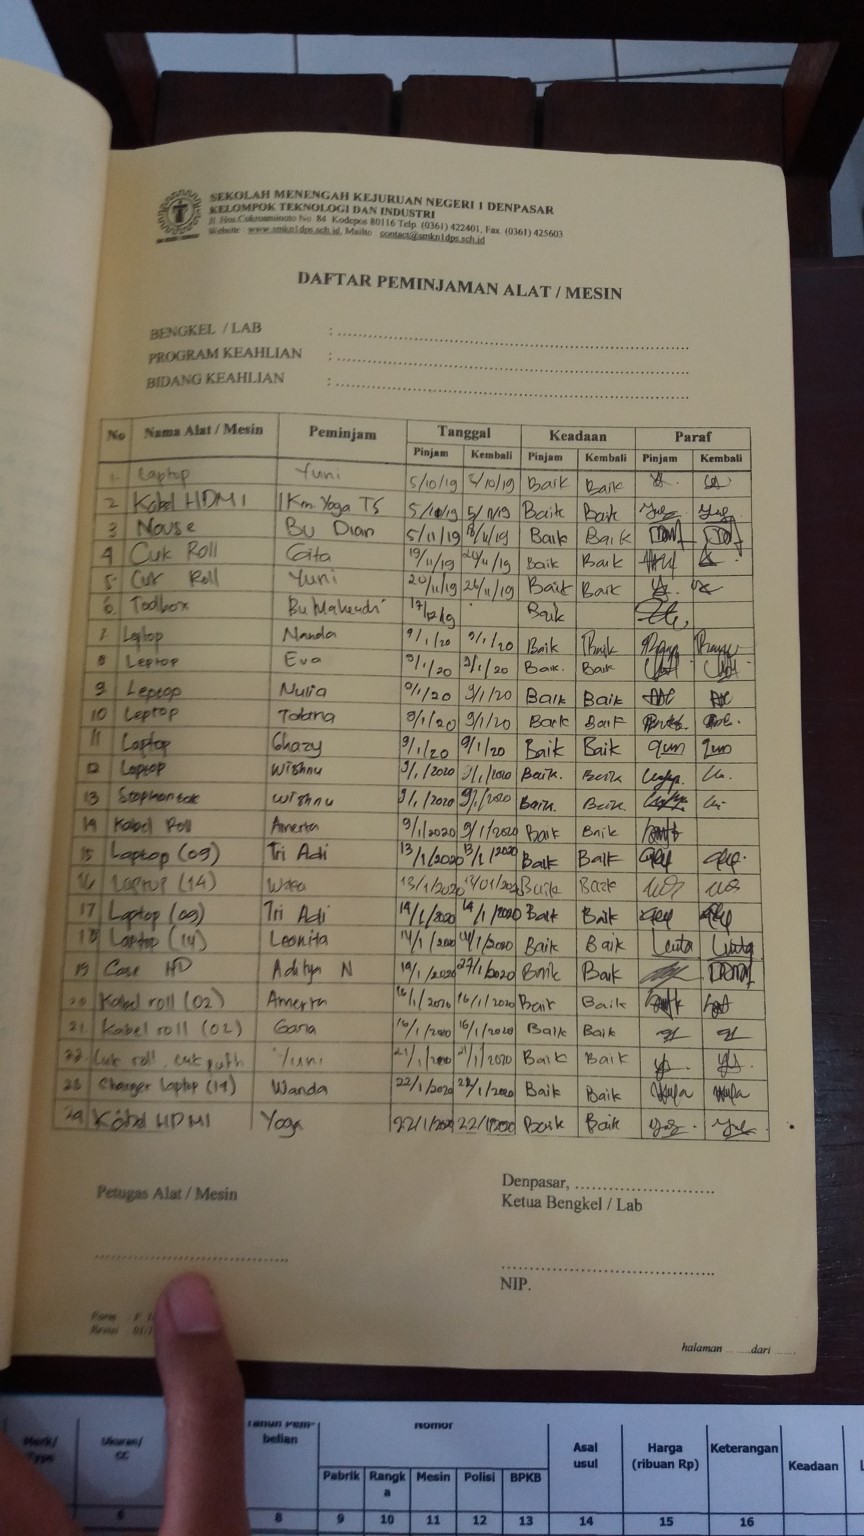 SEKOLAH MENENGAH KEJURUAN NEGERI 1 DENPASAR
KELOMPOK TEKNOLOGI DAN INDUSTRI
Jl. Hos.Cokroaminoto No. 84 Kodepos 80116 Telp. (0361) 422401, Fax. (0361) 425603
Website : www.smkn1dps.sch.id, Mailto : contact@smkn1dps.sch.id
DAFTAR PEMINJAMAN ALAT / MESIN
BENGKEL / LAB :
PROGRAM KEAHLIAN :
BIDANG KEAHLIAN :
No Nama Alat / Mesin Peminjam Tanggal Keadaan Paraf
Pinjam Kembali Pinjam Kembali Pinjam Kembali
1. Laptop Yuni 5/10/19 5/10/19 Baik Baik
2 Kabel HDMI Yoga TS 5/11/19 Baik Baik
3 Mouse Bu Dian 5/11/19 Baik Baik
4 Cuk Roll Gita 19/11/19 Baik Baik
5 Cuk Roll Yuni 20/11/19 Baik Baik
6. Toolbox Baik
7 Laptop Nanda 9/1/20 9/1/20 Baik Baik
8 Leptop Eva 9/1/20 9/1/20 Baik. Baik
9 Leptop Nulia 9/1/20 9/1/20 Baik Baik
10 Leptop 9/1/20 9/1/20 Baik Baik
11 Laptop Ghazy 9/1/20 9/1/20 Baik Baik
12 Laptop Wishnu 9/1/2020 9/1/2020 Baik. Baik
13 Wishnu 9/1/2020 9/1/2020 Baik. Baik.
14 Kabel Roll Amerta 9/1/2020 9/1/2020 Baik Baik
15 Laptop (09) Tri Adi 13/1/2020 13/1/2020 Baik Baik
16 Laptop (14) 13/1/2020 Baik Baik
17 Laptop (09) Tri Adi 14/1/2020 14/1/2020 Baik Baik
18 Laptop (14) Leonita 14/1/2020 14/1/2020 Baik Baik
19 Case HD Aditya N 27/1/2020 Baik Baik
20 Kabel roll (02) Amerta 16/1/2020 16/1/2020 Baik Baik
21. Kabel roll (02) Gana 16/1/2020 16/1/2020 Baik Baik
22. Cuk roll, cuk putih Yuni 21/1/2020 21/1/2020 Baik Baik
23 Charger laptop (14) Wanda 22/1/2020 Baik Baik
24 Kabel HDMI Yoga 22/1/2020 22/1/2020 Baik Baik
Petugas Alat / Mesin
Denpasar,
Ketua Bengkel / Lab
NIP.
halaman ......dari ......
Merk/ Type Ukuran/ CC Tahun Pembelian Nomor Asal usul Harga (ribuan Rp) Keterangan Keadaan
Pabrik Rangka Mesin Polisi BPKB
6 8 9 10 11 12 13 14 15 16